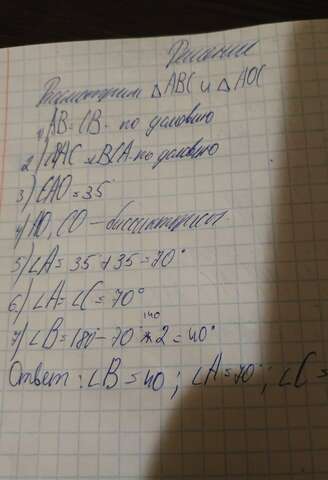 Решение
Рассмотрим △ABC и △AOC
1) AB=CB - по условию
2) ∠BAC и BCA - по условию
3) CAO = 35°
4) AO, CO - биссектрисы
5) ∠A = 35+35 = 70°
6) ∠A = ∠C = 70°
140
7) ∠B = 180 - 70 * 2 = 40°
Ответ: ∠B = 40; ∠A = 70°; ∠C =